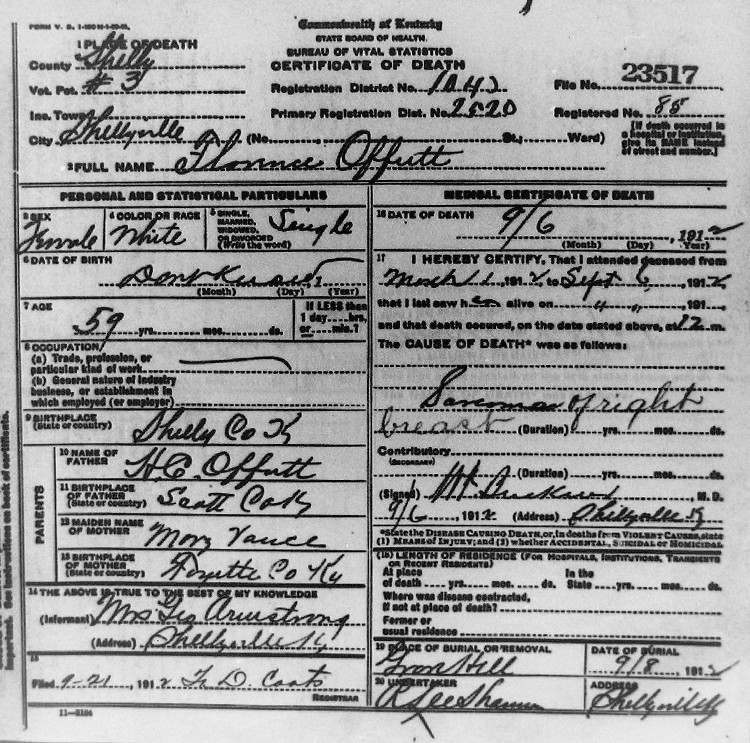 FORM V. S. 1
Commonwealth of Kentucky
STATE BOARD OF HEALTH.
BUREAU OF VITAL STATISTICS
CERTIFICATE OF DEATH
1 PLACE OF DEATH
County Shelby
Vot. Pct. # 3
Inc. Town
City Shelbyville (No. St.; Ward)
Registration District No. 1042
Primary Registration Dist. No. 2020
File No. 23517
Registered No. 88
[If death occurred in a hospital or institution, give its NAME instead of street and number.]
2 FULL NAME Florence Offutt
PERSONAL AND STATISTICAL PARTICULARS
3 SEX Female
4 COLOR OR RACE White
5 SINGLE, MARRIED, WIDOWED, OR DIVORCED (Write the word) Single
6 DATE OF BIRTH Dont Know, 1
(Month) (Day) (Year)
7 AGE 59 yrs. mos. ds.
If LESS than 1 day....hrs. or....min.?
8 OCCUPATION
(a) Trade, profession, or particular kind of work
(b) General nature of industry business, or establishment in which employed (or employer)
9 BIRTHPLACE (State or country) Shelby Co Ky
PARENTS
10 NAME OF FATHER H.C. Offutt
11 BIRTHPLACE OF FATHER (State or country) Scott Co Ky
12 MAIDEN NAME OF MOTHER Mary Vance
13 BIRTHPLACE OF MOTHER (State or country) Fayette Co Ky
14 THE ABOVE IS TRUE TO THE BEST OF MY KNOWLEDGE
(Informant) Mrs Geo Armstrong
(Address) Shelbyville Ky
15
Filed 9-21, 1912 F. D. Coots
REGISTRAR
11-3184
MEDICAL CERTIFICATE OF DEATH
16 DATE OF DEATH 9/6, 1912
(Month) (Day) (Year)
17 I HEREBY CERTIFY, That I attended deceased from
March 1, 1912, to Sept 6, 1912,
that I last saw her alive on " ", 191
and that death occured, on the date stated above, at 12 m.
The CAUSE OF DEATH* was as follows:
Sarcoma of right
breast (Duration) yrs. mos. ds.
Contributory
(SECONDARY)
(Duration) yrs. mos. ds.
(Signed) M.D.
9/6, 1912 (Address) Shelbyville Ky
*State the DISEASE CAUSING DEATH, or, in deaths from VIOLENT CAUSES, state (1) MEANS OF INJURY; and (2) whether ACCIDENTAL, SUICIDAL or HOMICIDAL
(18) LENGTH OF RESIDENCE (FOR HOSPITALS, INSTITUTIONS, TRANSIENTS OR RECENT RESIDENTS)
At place of death yrs. mos. ds. In the State yrs. mos. ds.
Where was disease contracted, if not at place of death?
Former or usual residence
19 PLACE OF BURIAL OR REMOVAL Grove Hill
DATE OF BURIAL 9/8, 1912
20 UNDERTAKER R Lee Shannon
ADDRESS Shelbyville Ky
important. See instructions on back of certificate.